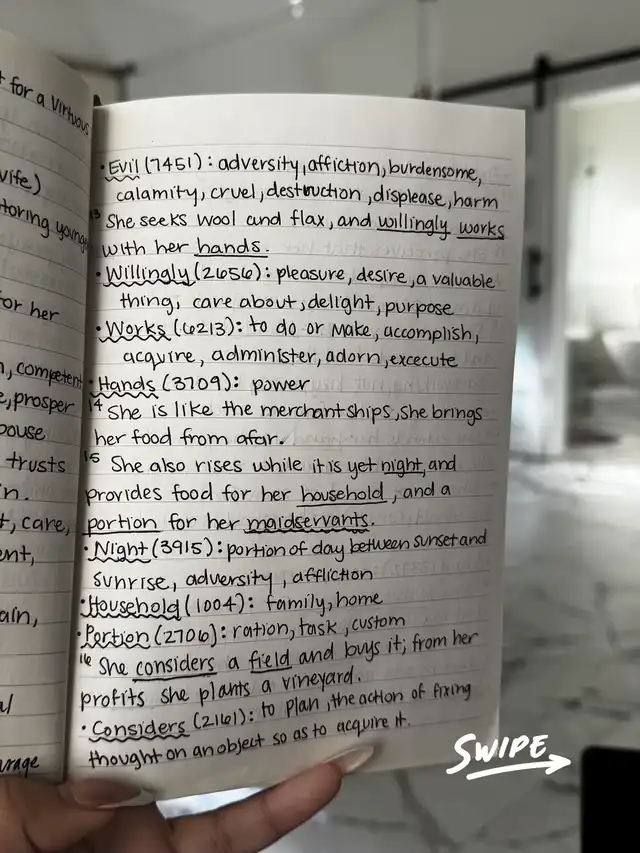 t for a virtuous
wife)
toring younge
for her
n, competent
e, prosper
pouse
trusts
in.
t, care,
ent,
ain,
al
urage
· Evil (7451): adversity, affiction, burdensome,
calamity, cruel, destruction, displease, harm
13 She seeks wool and flax, and willingly works
with her hands.
· Willingly (2656): pleasure, desire, a valuable
thing, care about, delight, purpose
· Works (6213): to do or make, accomplish,
acquire, administer, adorn, excecute
· Hands (3709): power
14 She is like the merchant ships, she brings
her food from afar.
15 She also rises while it is yet night, and
provides food for her household, and a
portion for her maidservants.
· Night (3915): portion of day between sunset and
sunrise, adversity, affliction
· Household (1004): family, home
· Portion (2706): ration, task, custom
16 She considers a field and buys it; from her
profits she plants a vineyard.
· Considers (2161): to plan, the action of fixing
thought on an object so as to acquire it.
SWIPE